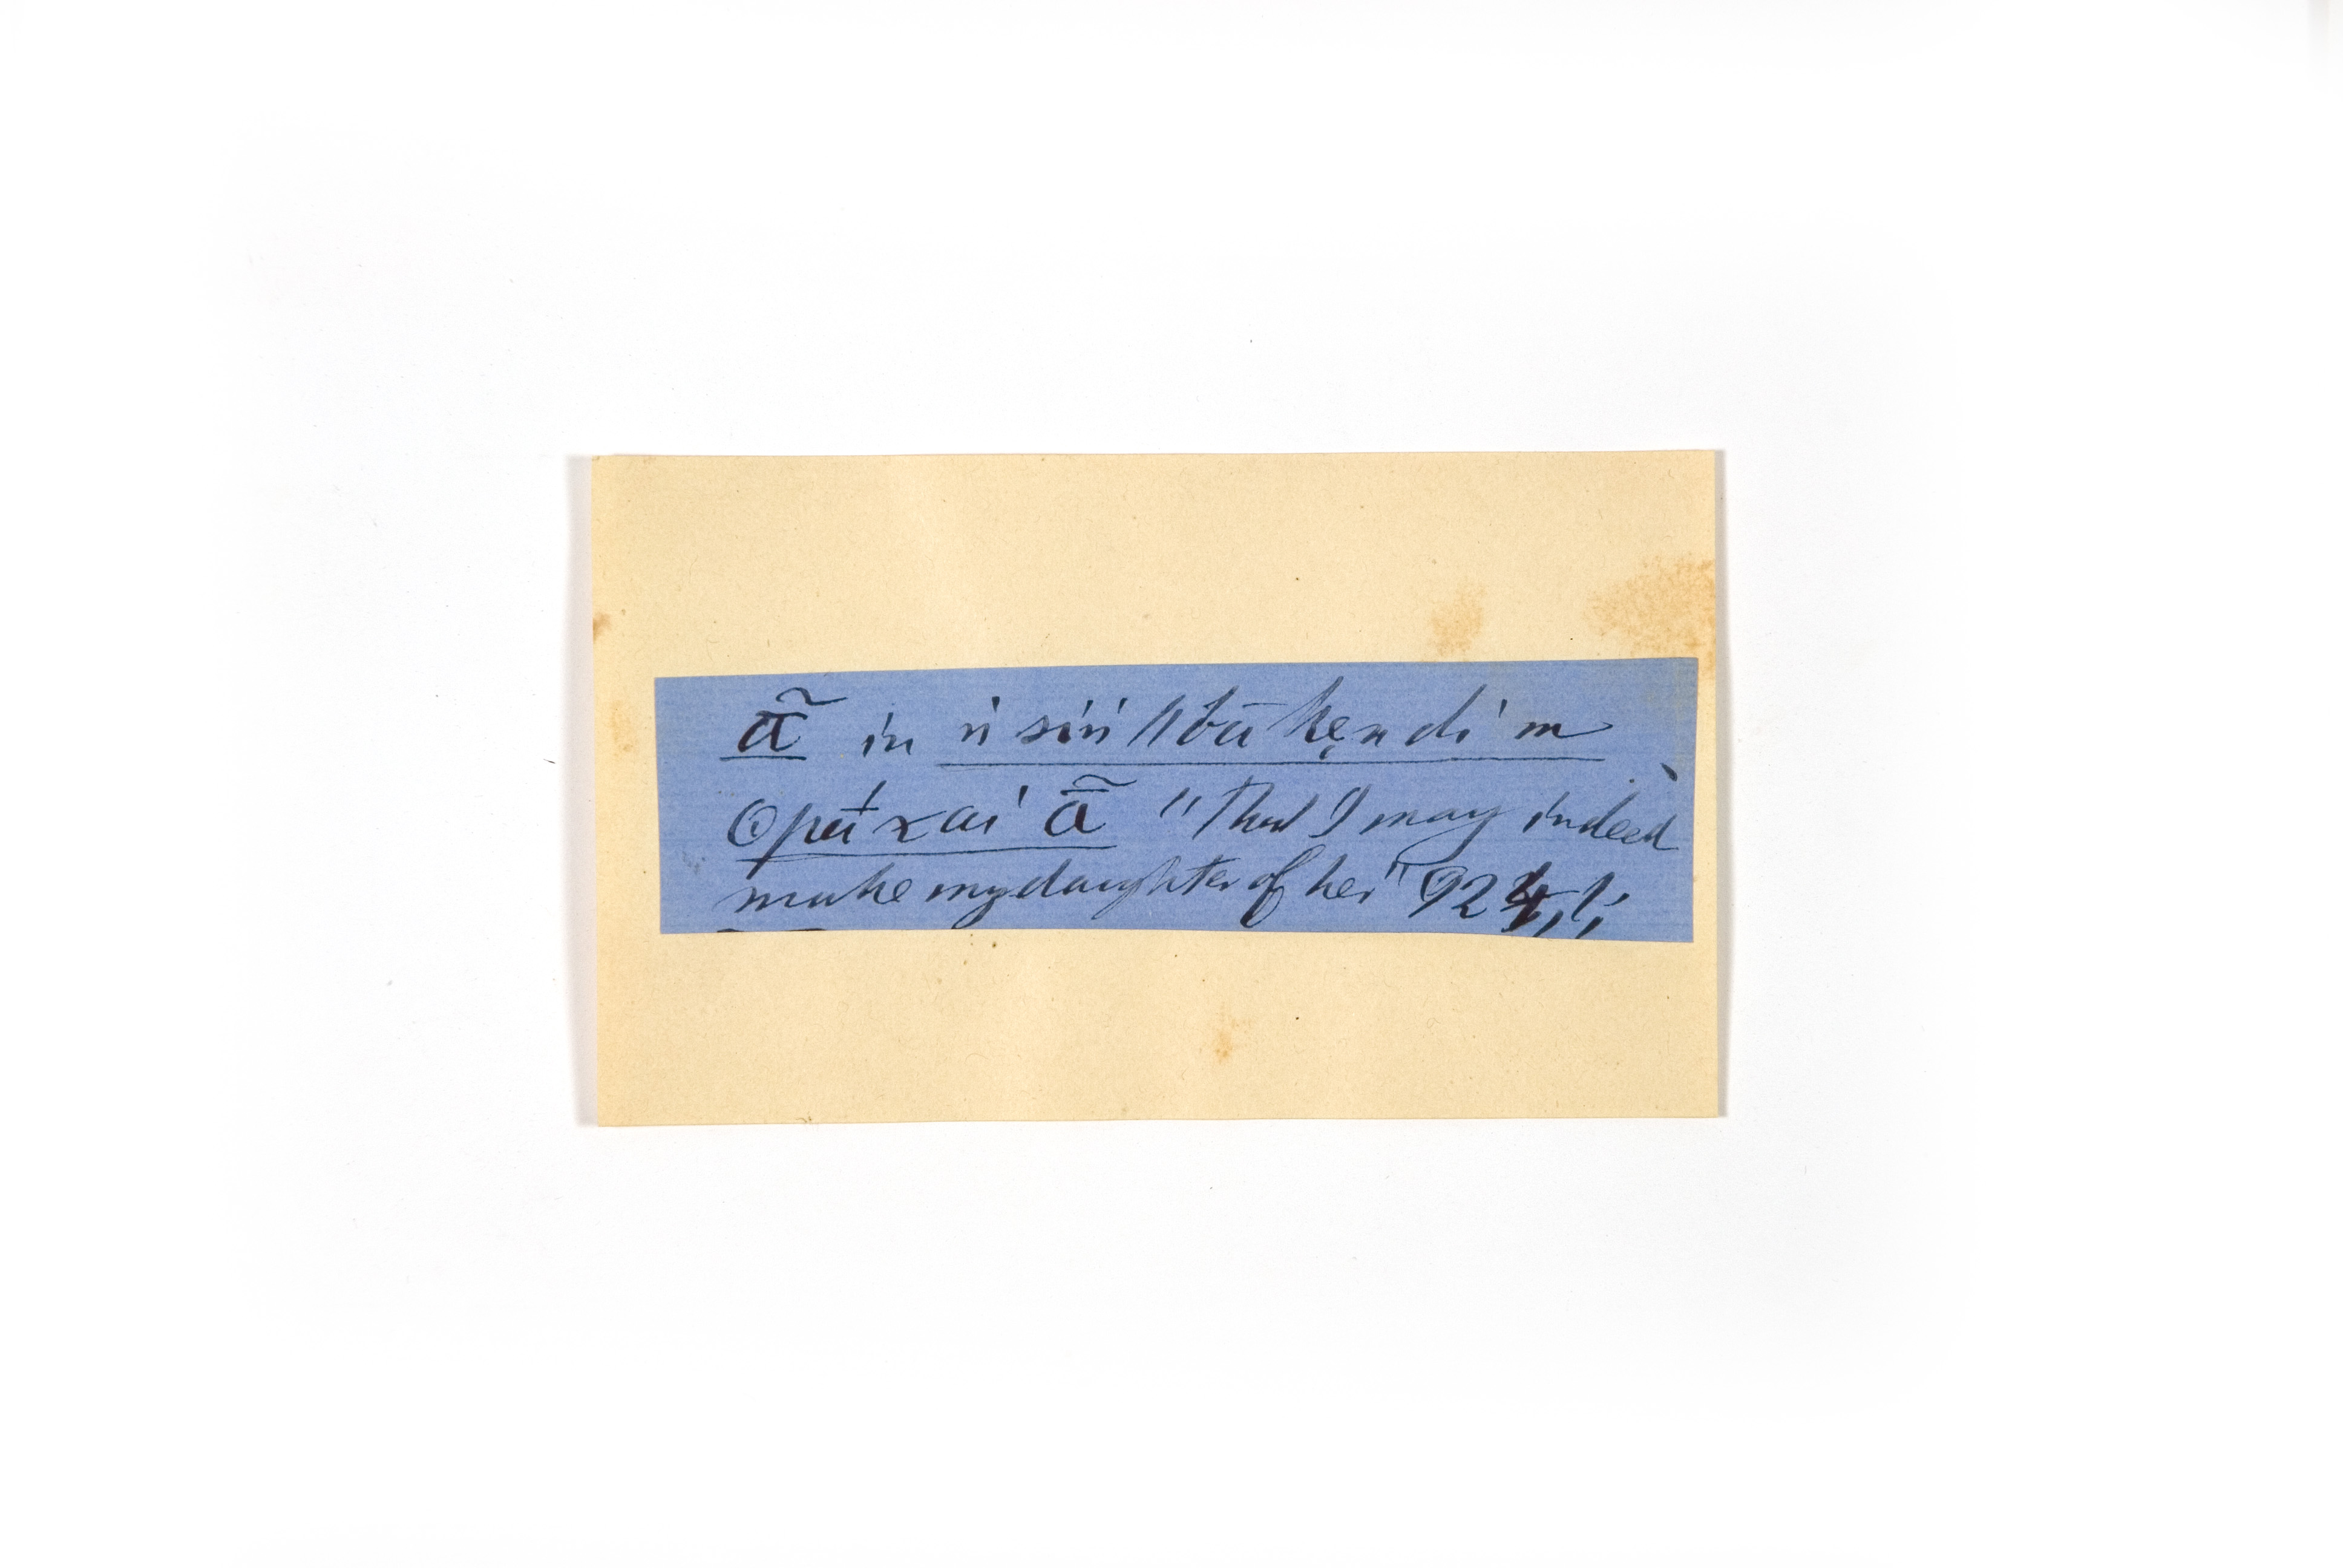 ã̄ in ń siń ǁbū kẹn di m
Θpŭáχai ã̄ "That I may indeed
make my daughter of her" 924,1;